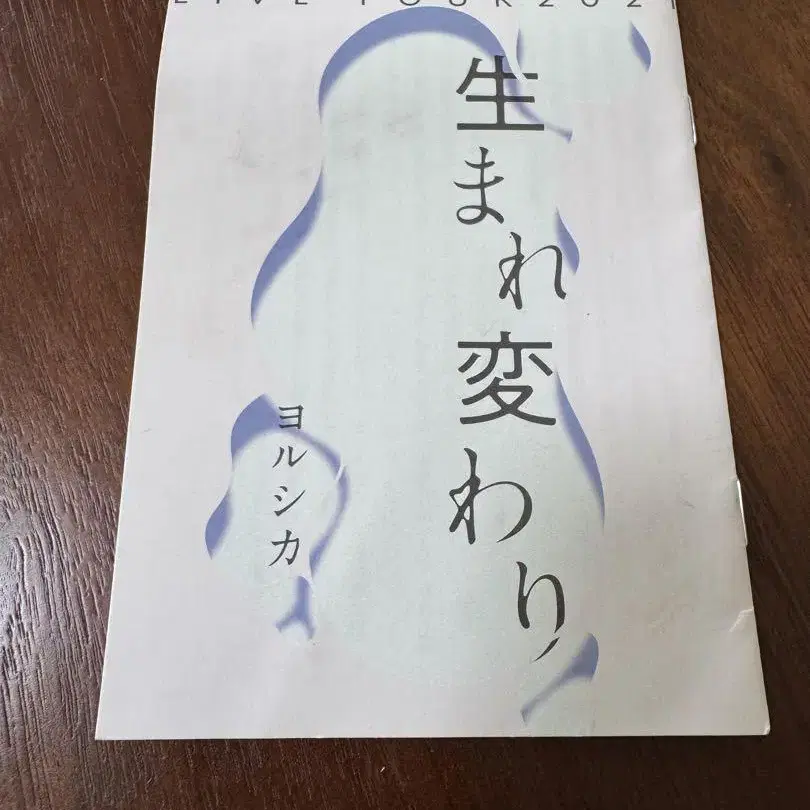 LIVE TOUR 2021
生まれ変わり
ヨルシカ